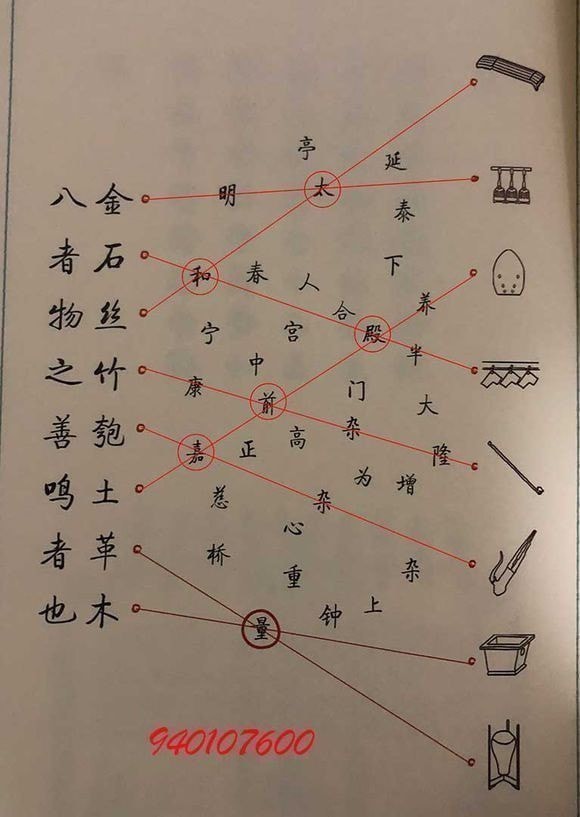 八者物之善鸣者也
金石丝竹匏土革木
亭
延
明
太
泰
和
春
人
下
合
养
宁
宫
殿
半
中
康
前
门
大
杂
嘉
正
高
隆
慈
杂
为
增
心
桥
重
杂
量
钟
上
940107600